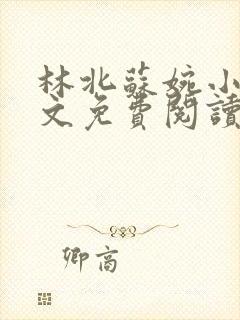 林北蘇婉小
文免費閱讀
卿高